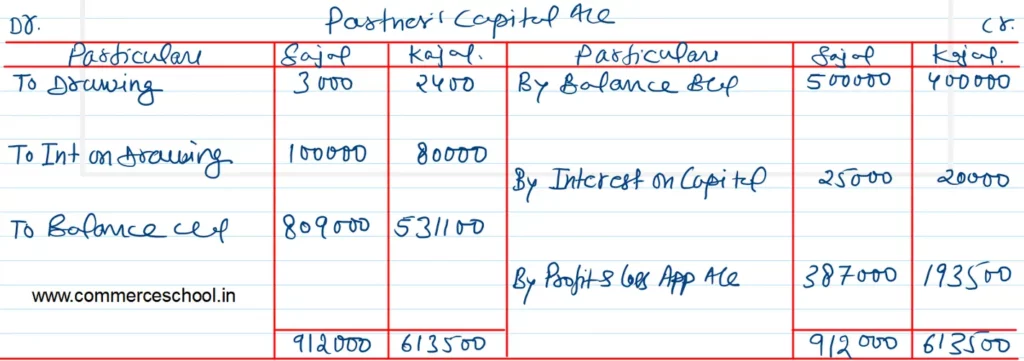 Partner's Capital A/c
Dr. Cr.
Particulars Sajal Kajal. Particulars Sajal Kajal.
To Drawing 3000 2400 By Balance B/d 500000 400000
To Int on Drawing 100000 80000
By Interest on Capital 25000 20000
To Balance c/d 809000 531100
By Profit & loss App A/c 387000 193500
www.commerceschool.in
912000 613500 912000 613500